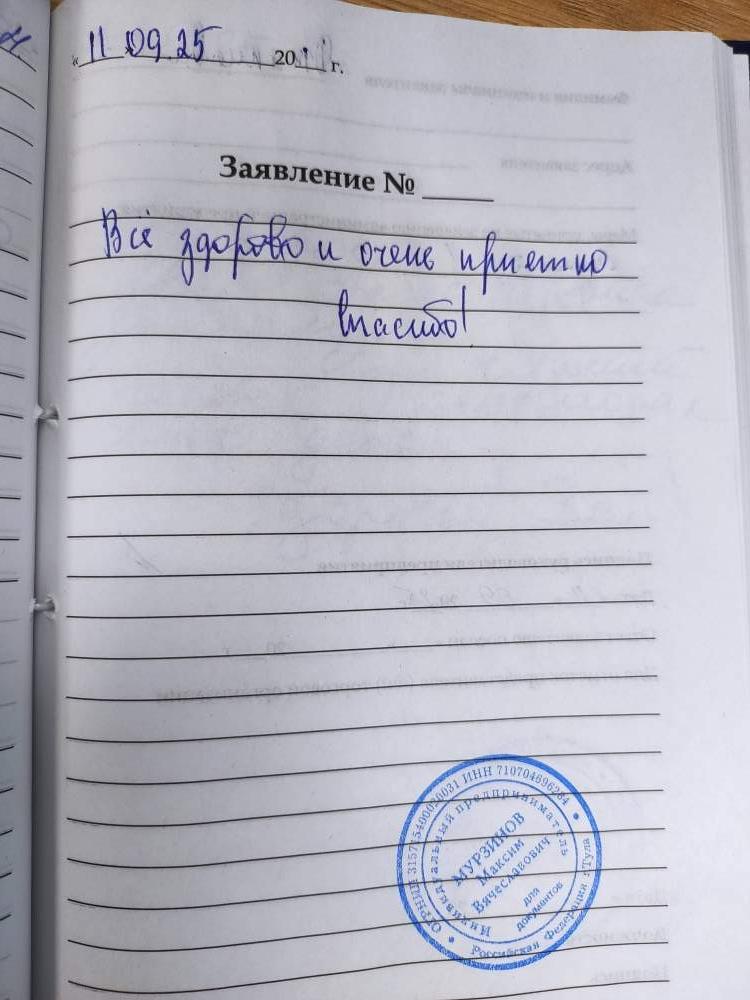 « 11 09 25 20 г.
Заявление №
Всё здорово и очень приетно
спасибо!
ИНН 710704696264
Индивидуальный предприниматель
МУРЗИНОВ
Максим
Вячеславович
для
документов
Российская Федерация г.Тула